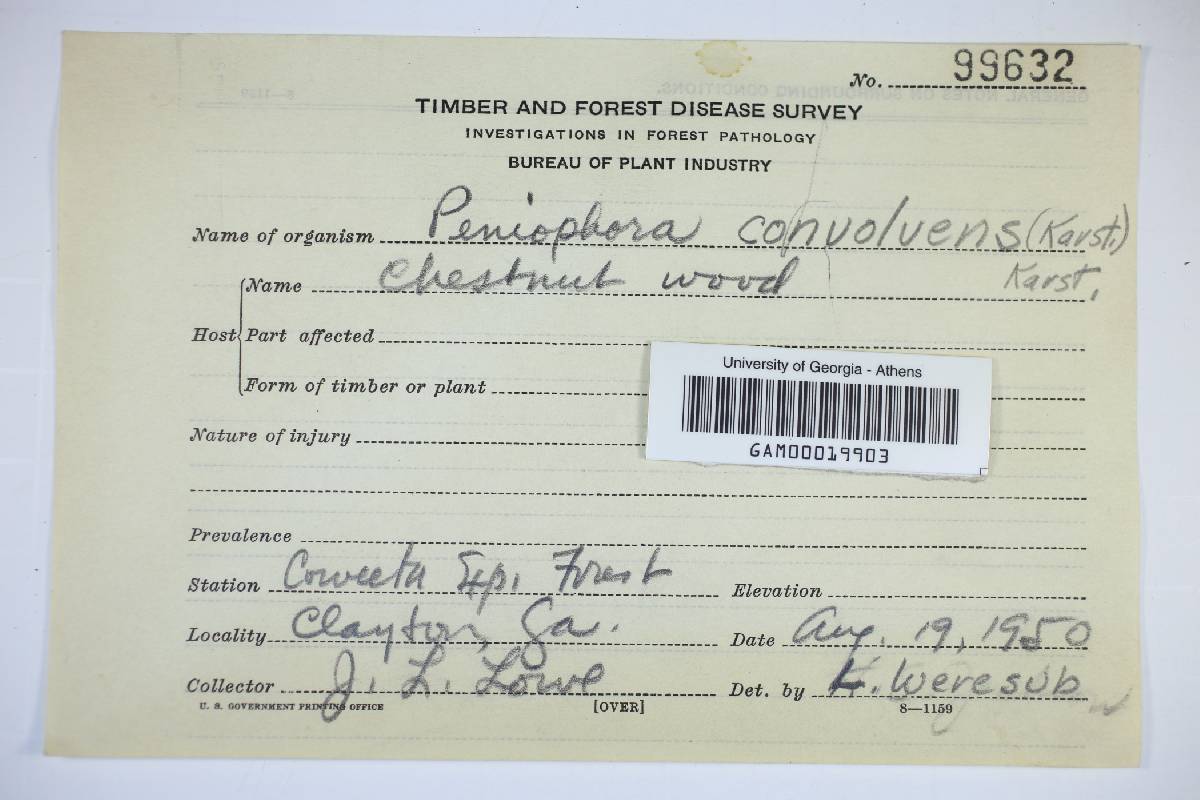 No. 99632
TIMBER AND FOREST DISEASE SURVEY
INVESTIGATIONS IN FOREST PATHOLOGY
BUREAU OF PLANT INDUSTRY
Name of organism Peniophora convolvens (Karst.)
Karst.
Host Name Chestnut wood
Part affected
Form of timber or plant
University of Georgia - Athens
GAM00019903
Nature of injury
Prevalence
Station Coweeta Exp. Forest Elevation
Locality Clayton, Ga. Date Aug. 19, 1950
Collector J. L. Lowe Det. by L. Weresub
U. S. GOVERNMENT PRINTING OFFICE [OVER] 8—1159
GENERAL NOTES ON SURROUNDING CONDITIONS.
8—1159